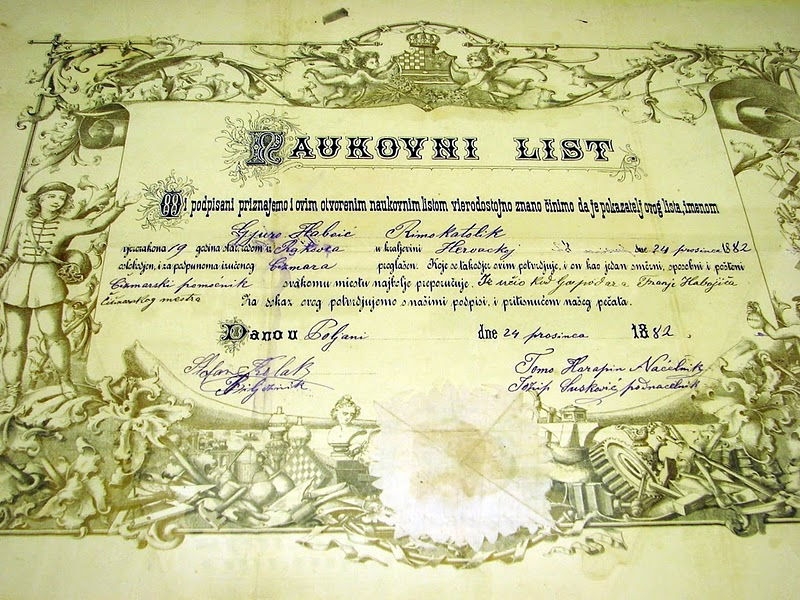 NAUKOVNI LIST
Mi podpisani priznajemo i ovim otvorenim naukovnim listom vierodostojno znano činimo da je pokazatelj ovog lista, imenom
Gjuro Habeić Rimokatolik
vjerozakona 19 godina star, rodom u Rakovca u kraljevini Hervackoj dne 24 prosinca 1882
oslobodjen, i za podpunoma izučenog Čizmara proglašen: Koje se takodjer ovim potvrdjuje, i on kao jedan smierni, sposobni i pošteni
Čizmarski pomoćnik svakomu miestu najbolje preporučuje. Je učio kod Gospodara Franje Habojića
Čižmarskog meštra Na dokaz ovog potvrdjujemo s našimi podpisi, i pritisnućem našeg pečata.
Dano u Poljani dne 24 prosinca 1882.
Kolak Tomo Harapin Načelnik
Bilježnik Josip Suskević podnačelnik